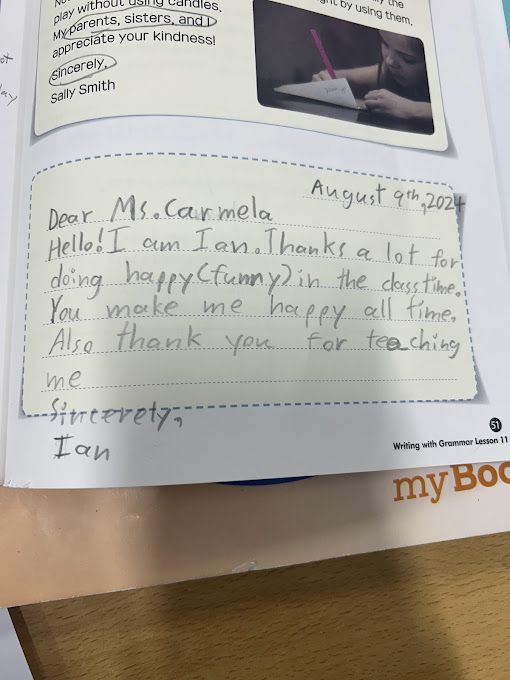 play without using candles.
My parents, sisters, and I
appreciate your kindness!
Sincerely,
Sally Smith
the
by using them.
August 9th, 2024
Dear Ms. Carmela
Hello! I am Ian. Thanks a lot for
doing happy (funny) in the class time.
You make me happy all time.
Also thank you for teaching
me
Sincerely,
Ian
51
Writing with Grammar Lesson 11
my